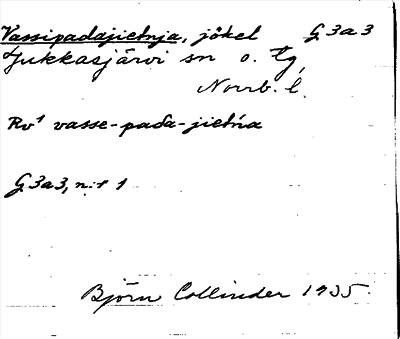 Vassipadajietnja, jökel G 3 a 3
Jukkasjärvi sn o. tg,
Norrb. l.
Rv¹ vasse-paďa-jietńa
G 3 a 3, n:r 1
Björn Collinder 1935.